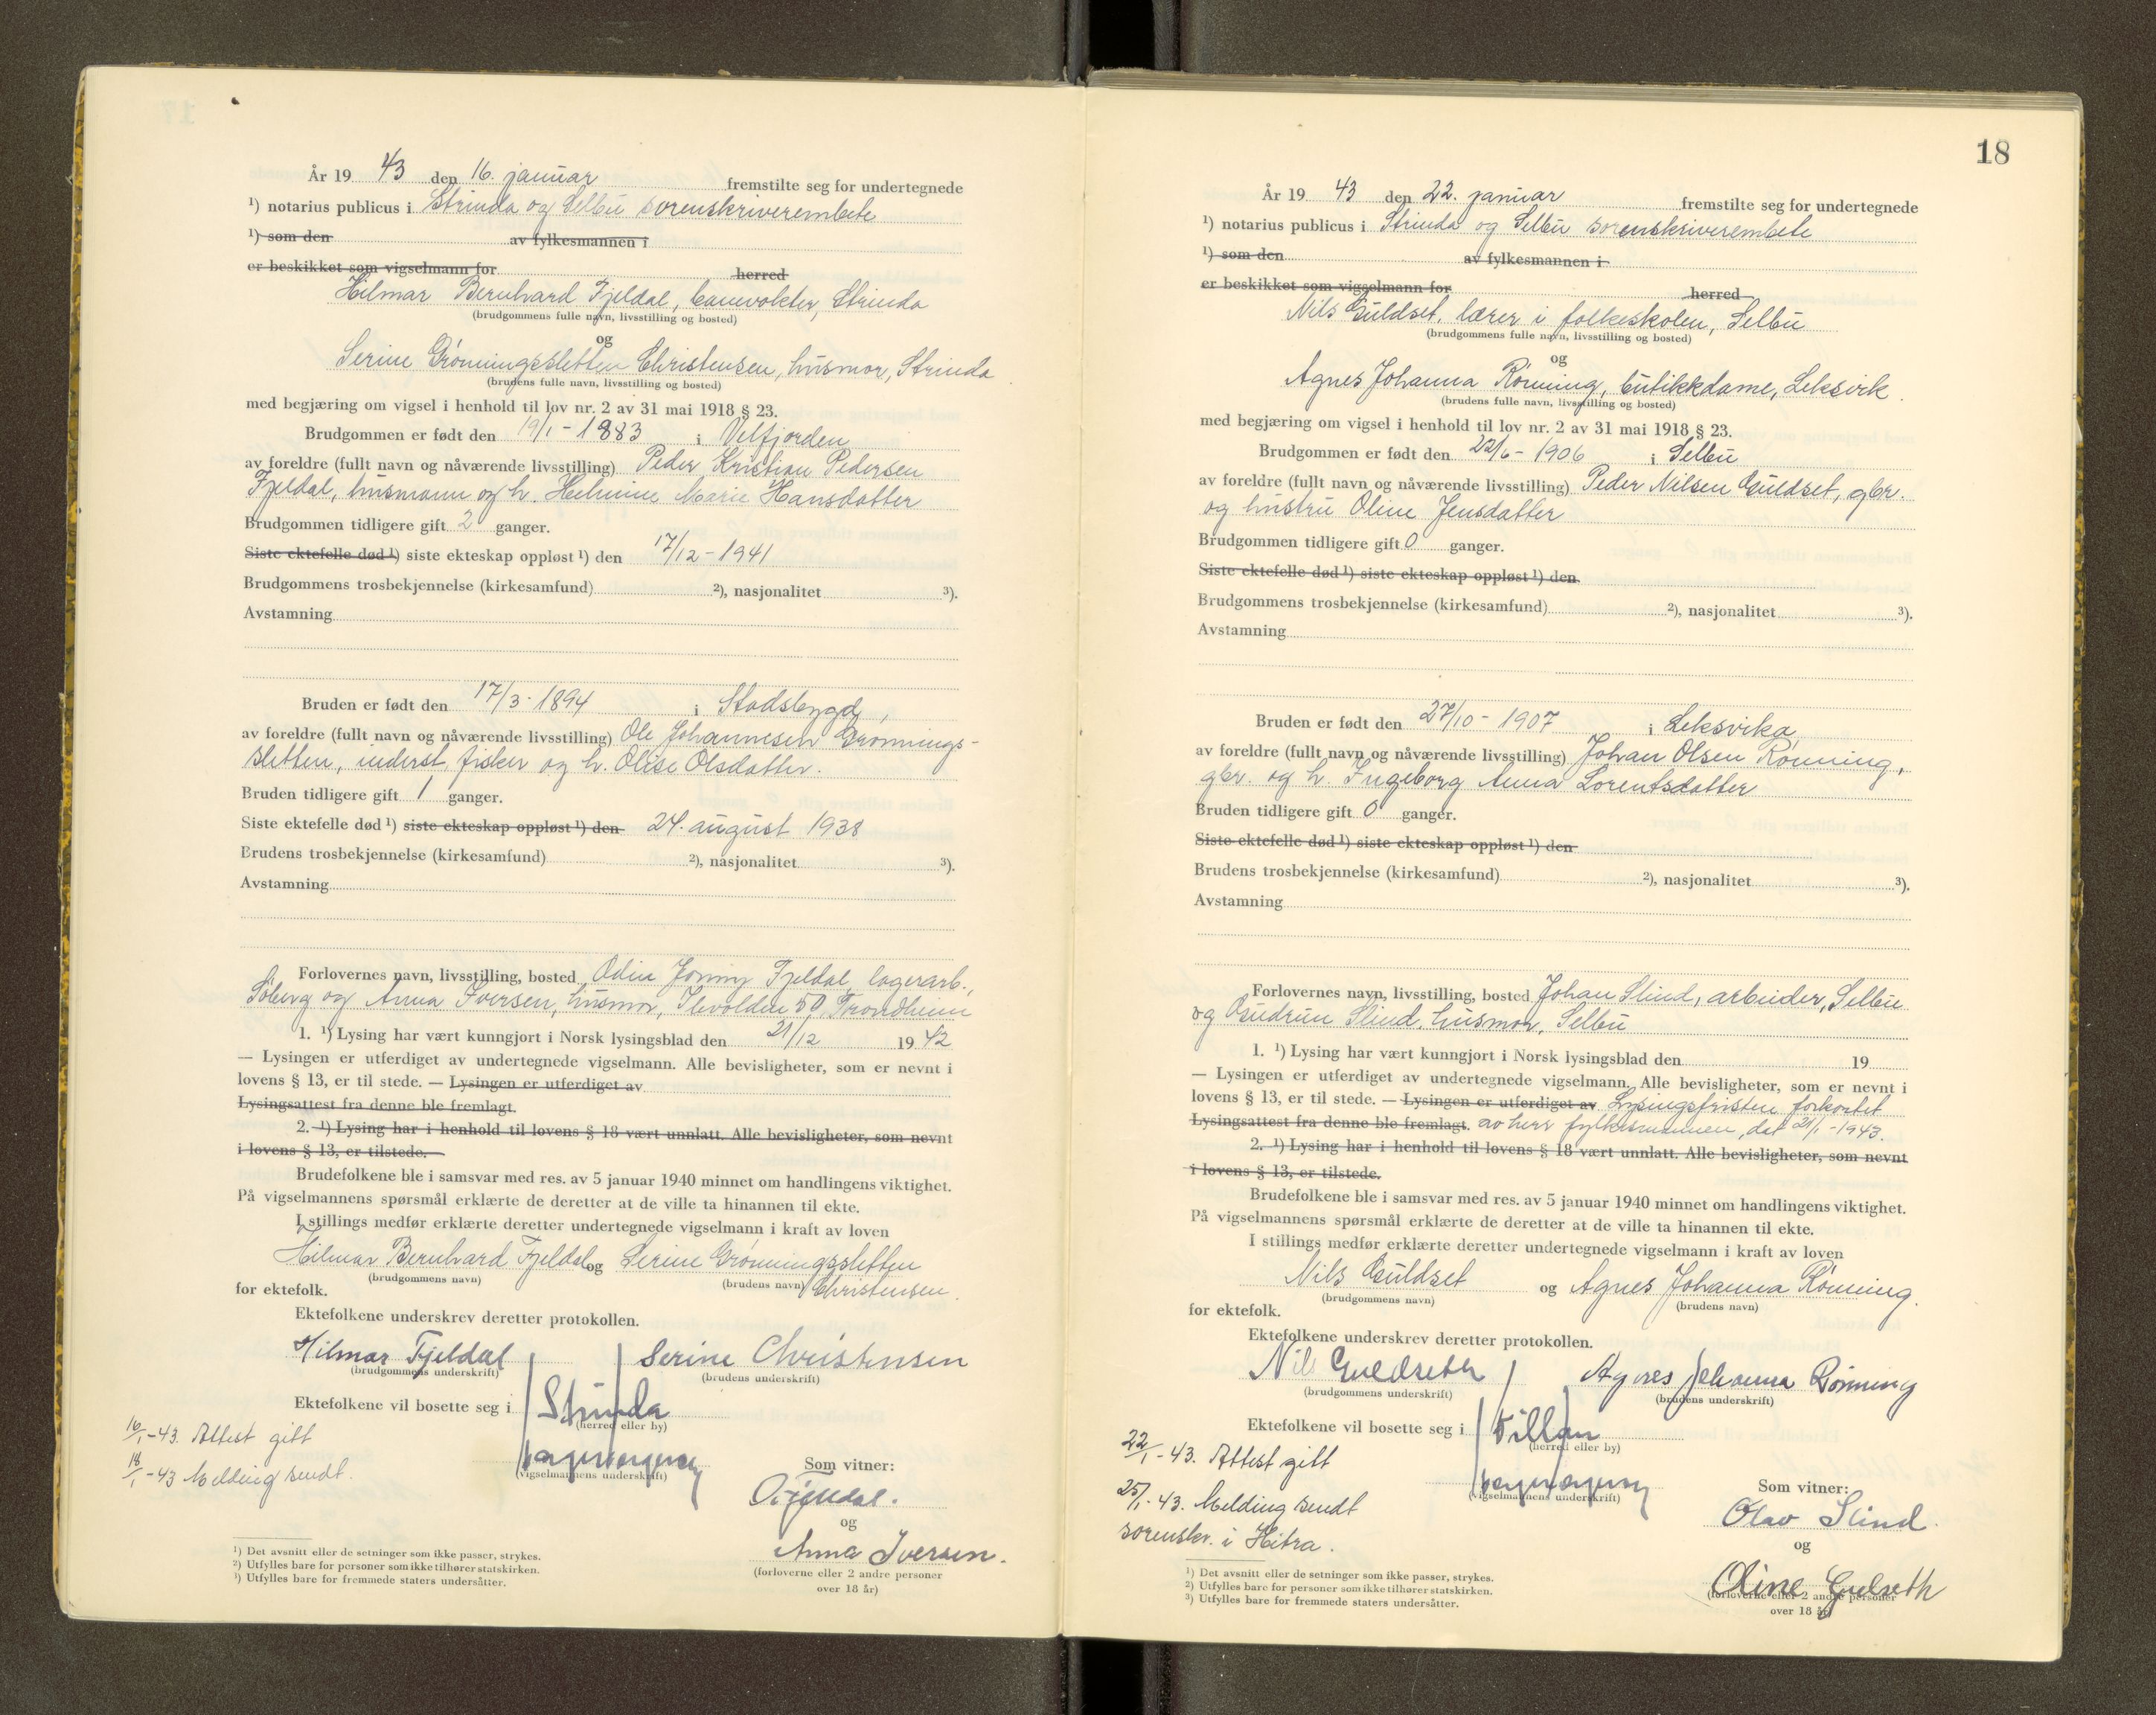 År 19 43 den 16. januar fremstilte seg for undertegnede
¹) notarius publicus i Strinda og Selbu sorenskriverembete
¹) som den av fylkesmannen i
er beskikket som vigselmann for herred
Hilmar Bernhard Fjeldal, banevokter, Strinda
(brudgommens fulle navn, livsstilling og bosted)
og
Serine Grønningssletten Christensen, husmor, Strinda
(brudens fulle navn, livsstilling og bosted)
med begjæring om vigsel i henhold til lov nr. 2 av 31 mai 1918 § 23.
Brudgommen er født den 19/1 - 1883 i Velfjorden
av foreldre (fullt navn og nåværende livsstilling) Peder Kristian Pedersen
Fjeldal, husmann og h. Helmine Marie Hansdatter
Brudgommen tidligere gift 2 ganger.
Siste ektefelle død ¹) siste ekteskap oppløst ¹) den 17/12 - 1941
Brudgommens trosbekjennelse (kirkesamfund) ²), nasjonalitet ³).
Avstamning
Bruden er født den 17/3 - 1894 i Stadsbygd,
av foreldre (fullt navn og nåværende livsstilling) Ole Johannesen Grønnings-
sletten, inderst, fisker og h. Olise Olsdatter.
Bruden tidligere gift 1 ganger.
Siste ektefelle død ¹) siste ekteskap oppløst ¹) den 24. august 1938
Brudens trosbekjennelse (kirkesamfund) ²), nasjonalitet ³).
Avstamning
Forlovernes navn, livsstilling, bosted Odin Fjeldal, lagerarb.,
Søberg og Anna Iversen, husmor, Ilevolden 50, Trondheim
1. ¹) Lysing har vært kunngjort i Norsk lysingsblad den 21/12 19 42
— Lysingen er utferdiget av undertegnede vigselmann. Alle bevisligheter, som er nevnt i
lovens § 13, er til stede. — Lysingen er utferdiget av
Lysingsattest fra denne ble fremlagt.
2. ¹) Lysing har i henhold til lovens § 18 vært unnlatt. Alle bevisligheter, som nevnt
i lovens § 13, er tilstede. —
Brudefolkene ble i samsvar med res. av 5 januar 1940 minnet om handlingens viktighet.
På vigselmannens spørsmål erklærte de deretter at de ville ta hinannen til ekte.
I stillings medfør erklærte deretter undertegnede vigselmann i kraft av loven
Hilmar Bernhard Fjeldal og Serine Grønningssletten
(brudgommens navn) (brudens navn) Christensen.
for ektefolk.
Ektefolkene underskrev deretter protokollen.
Hilmar Fjeldal Serine Christensen
(brudgommens underskrift) (brudens underskrift)
Ektefolkene vil bosette seg i Strinda
(herred eller by)
16/1 -43. Attest gitt
18/1 -43 Melding sendt.
(vigselmannens underskrift)
Som vitner:
O. Fjeldal.
og
Anna Iversen.
(forloverne eller 2 andre personer
over 18 år)
¹) Det avsnitt eller de setninger som ikke passer, strykes.
²) Utfylles bare for personer som ikke tilhører statskirken.
³) Utfylles bare for fremmede staters undersåtter.
18
År 19 43 den 22. januar fremstilte seg for undertegnede
¹) notarius publicus i Strinda og Selbu sorenskriverembete
¹) som den av fylkesmannen i
er beskikket som vigselmann for herred
Nils Guldset, lærer i folkeskolen, Selbu
(brudgommens fulle navn, livsstilling og bosted)
og
Agnes Johanna Rønning, butikkdame, Leksvik.
(brudens fulle navn, livsstilling og bosted)
med begjæring om vigsel i henhold til lov nr. 2 av 31 mai 1918 § 23.
Brudgommen er født den 22/6 - 1906 i Selbu
av foreldre (fullt navn og nåværende livsstilling) Peder Nilsen Guldset, gbr.
og hustru Oline Jensdatter
Brudgommen tidligere gift 0 ganger.
Siste ektefelle død ¹) siste ekteskap oppløst ¹) den
Brudgommens trosbekjennelse (kirkesamfund) ²), nasjonalitet ³).
Avstamning
Bruden er født den 27/10 - 1907 i Leksvika
av foreldre (fullt navn og nåværende livsstilling) Johan Olsen Rønning,
gbr. og h. Ingeborg Anna Lorentsdatter
Bruden tidligere gift 0 ganger.
Siste ektefelle død ¹) siste ekteskap oppløst ¹) den
Brudens trosbekjennelse (kirkesamfund) ²), nasjonalitet ³).
Avstamning
Forlovernes navn, livsstilling, bosted Johan Slind, arbeider, Selbu
og Gudrun Slind, husmor, Selbu
1. ¹) Lysing har vært kunngjort i Norsk lysingsblad den 19
— Lysingen er utferdiget av undertegnede vigselmann. Alle bevisligheter, som er nevnt i
lovens § 13, er til stede. — Lysingen er utferdiget av Lysingsfristen forkortet
Lysingsattest fra denne ble fremlagt. av herr fylkesmannen, dat 21/1 - 1943.
2. ¹) Lysing har i henhold til lovens § 18 vært unnlatt. Alle bevisligheter, som nevnt
i lovens § 13, er tilstede.
Brudefolkene ble i samsvar med res. av 5 januar 1940 minnet om handlingens viktighet.
På vigselmannens spørsmål erklærte de deretter at de ville ta hinannen til ekte.
I stillings medfør erklærte deretter undertegnede vigselmann i kraft av loven
Nils Guldset og Agnes Johanna Rønning.
(brudgommens navn) (brudens navn)
for ektefolk.
Ektefolkene underskrev deretter protokollen.
Nils Guldseth Agnes Johanna Rønning
(brudgommens underskrift) (brudens underskrift)
Ektefolkene vil bosette seg i Fillan
(herred eller by)
22/1 -43. Attest gitt
25/1 -43. Melding sendt
sorenskr. i Hitra.
(vigselmannens underskrift)
Som vitner:
Olav Slind.
og
Oline Guldseth
(forloverne eller 2 andre personer
over 18 år)
¹) Det avsnitt eller de setninger som ikke passer, strykes.
²) Utfylles bare for personer som ikke tilhører statskirken.
³) Utfylles bare for fremmede staters undersåtter.